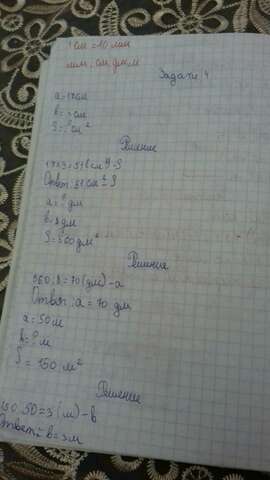 1 см = 10 мм
мм, см, дм, м
Задача 4
a = 17 см
b = 3 см
S = ? см²
Решение
17×3=51 (см²)-S
Ответ: 51 см² = S
a = ? дм
b 8 дм
S = 560 дм²
Решение
560:8=70 (дм)-a
Ответ: a = 70 дм
a = 50 м
b = ? м
S = 150 м²
Решение
150:50=3 (м)-b
Ответ: b = 3м